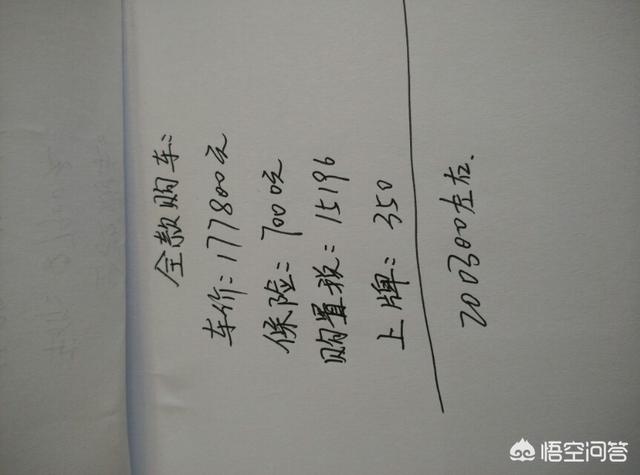 全款购车:
车价:177800元
保险:7000元
购置税:15196
上牌:350
200300左右.
悟空问答